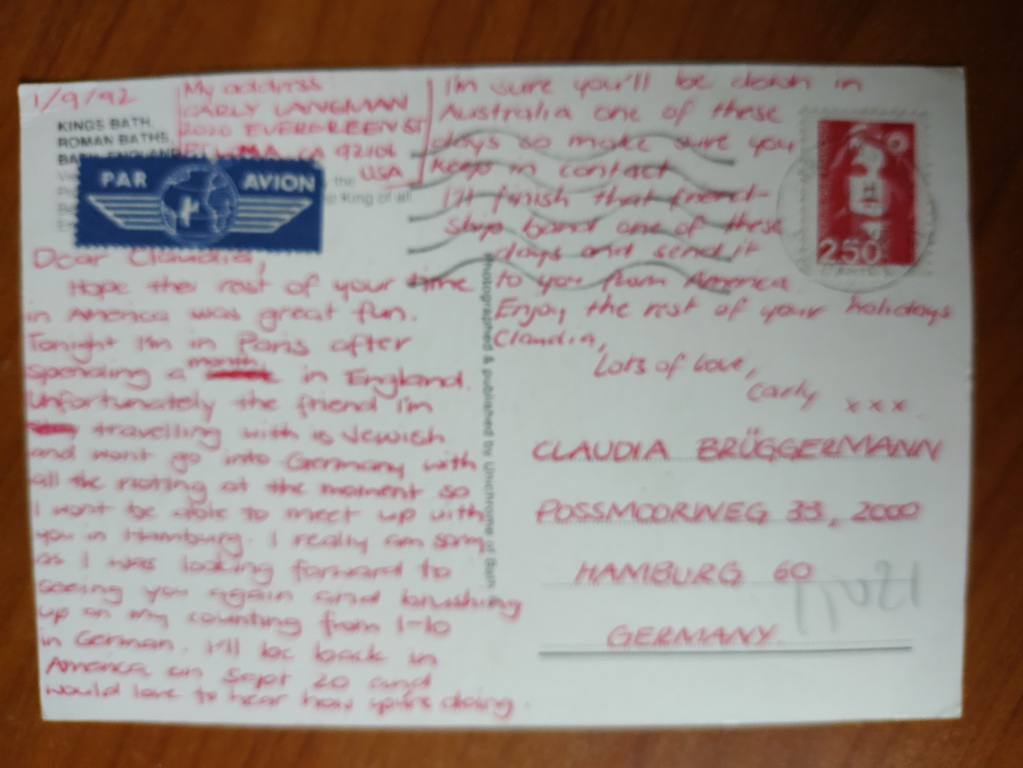 1/9/92
KINGS BATH,
ROMAN BATHS,
PAR AVION
the
King of all
My address
CARLY LANGMAN
2020 EVERGREEN ST
CA 92106
USA
Dear Claudia,
Hope the rest of your time
in America was great fun.
Tonight I'm in Paris after
spending a month in England.
Unfortunately the friend I'm
travelling with is Jewish
and wont go into Germany with
all the rioting at the moment so
I wont be able to meet up with
you in Hamburg. I really am sorry
as I was looking forward to
seeing you again and brushing
up on my counting from 1-10
in German. I'll be back in
America on Sept 20 and
would love to hear how you're doing.
I'm sure you'll be down in
Australia one of these
days so make sure you
keep in contact
I'll finish that friend-
ship band one of these
days and send it
to you from America
Enjoy the rest of your holidays
Claudia,
Lots of love,
Carly xxx
2.50
Photographed & published by Unichrome of Bath
CLAUDIA BRÜGGERMANN
POSSMOORWEG 33, 2000
HAMBURG 60
GERMANY.